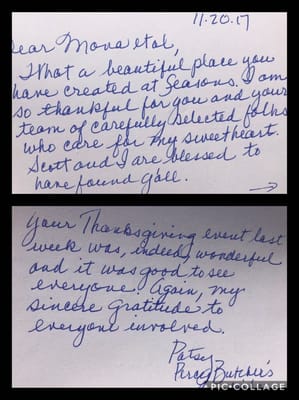 11.20.17
Dear Mona et al,
What a beautiful place you
have created at Seasons. I am
so thankful for you and your
team of carefully selected folks
who care for my sweetheart.
Scott and I are blessed to
have found y'all.
Your Thanksgiving event last
week was, indeed, wonderful
and it was good to see
everyone. Again, my
sincere gratitude to
everyone involved.
Patsy
Percy Butcher's
PIC•COLLAGE